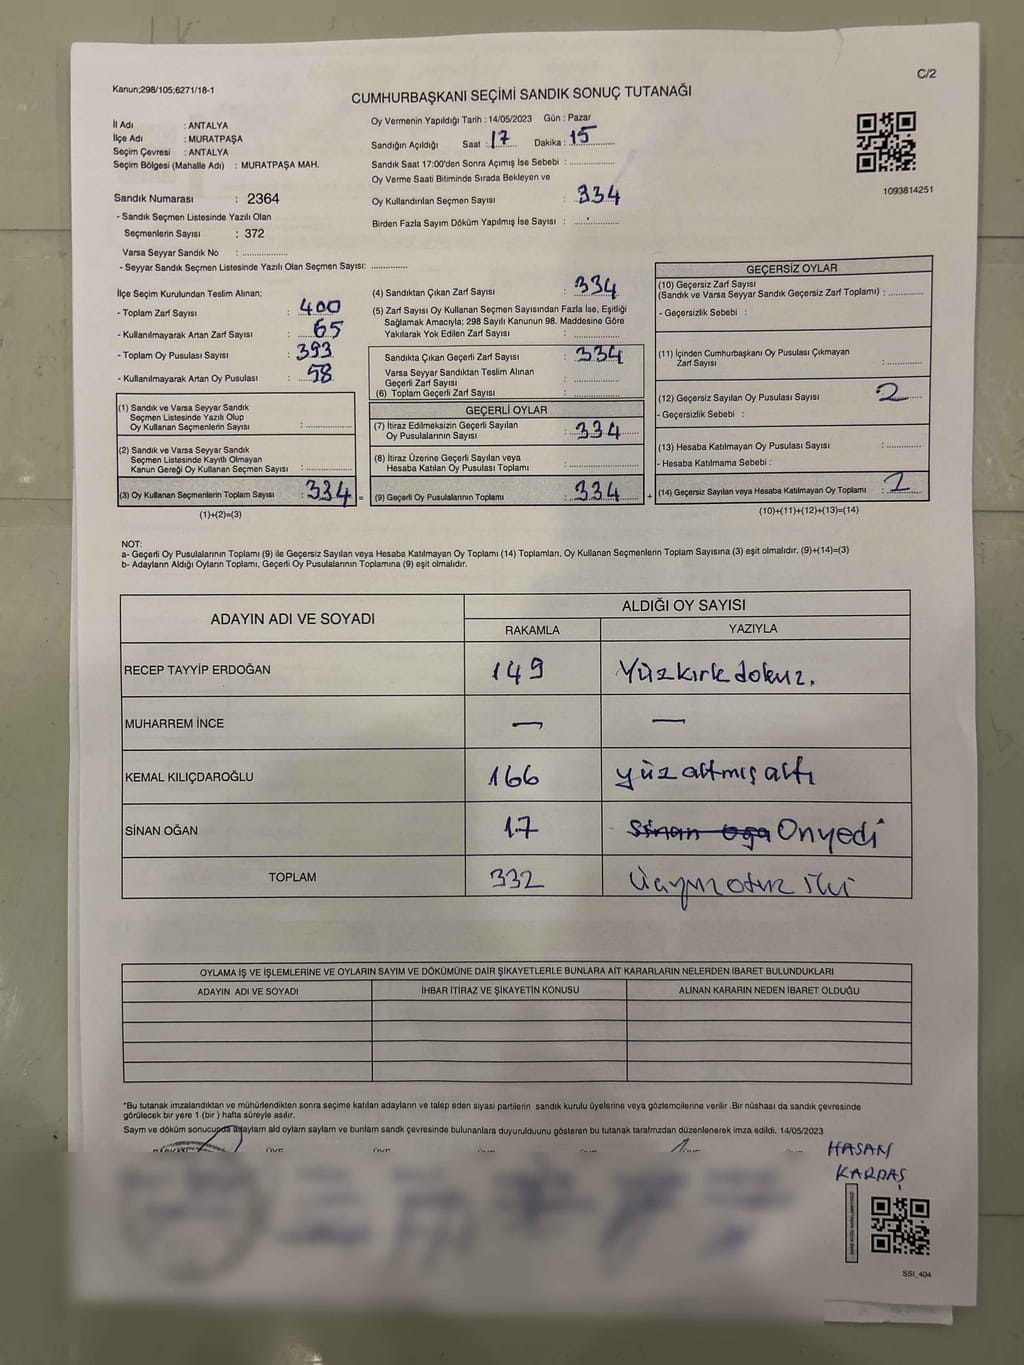 C/2
Kanun;298/105;6271/18-1
CUMHURBAŞKANI SEÇİMİ SANDIK SONUÇ TUTANAĞI
İl Adı : ANTALYA
İlçe Adı : MURATPAŞA
Seçim Çevresi : ANTALYA
Seçim Bölgesi (Mahalle Adı) : MURATPAŞA MAH.
Oy Vermenin Yapıldığı Tarih : 14/05/2023 Gün : Pazar
Sandığın Açıldığı Saat : 17 Dakika : 15
Sandık Saat 17:00'den Sonra Açımış İse Sebebi :
Oy Verme Saati Bitiminde Sırada Bekleyen ve
Oy Kullandırılan Seçmen Sayısı : 334
Birden Fazla Sayım Döküm Yapılmış İse Sayısı :
1093814251
Sandık Numarası : 2364
- Sandık Seçmen Listesinde Yazılı Olan
Seçmenlerin Sayısı : 372
Varsa Seyyar Sandık No :
- Seyyar Sandık Seçmen Listesinde Yazılı Olan Seçmen Sayısı:
İlçe Seçim Kurulundan Teslim Alınan;
- Toplam Zarf Sayısı : 400
- Kullanılmayarak Artan Zarf Sayısı : 65
- Toplam Oy Pusulası Sayısı : 393
- Kullanılmayarak Artan Oy Pusulası : 58
(1) Sandık ve Varsa Seyyar Sandık
Seçmen Listesinde Yazılı Olup
Oy Kullanan Seçmenlerin Sayısı :
(2) Sandık ve Varsa Seyyar Sandık
Seçmen Listesinde Kayıtlı Olmayan
Kanun Gereği Oy Kullanan Seçmen Sayısı :
(3) Oy Kullanan Seçmenlerin Toplam Sayısı : 334 =
(1)+(2)=(3)
(4) Sandıktan Çıkan Zarf Sayısı : 334
(5) Zarf Sayısı Oy Kullanan Seçmen Sayısından Fazla İse, Eşitliği
Sağlamak Amacıyla; 298 Sayılı Kanunun 98. Maddesine Göre
Yakılarak Yok Edilen Zarf Sayısı :
Sandıkta Çıkan Geçerli Zarf Sayısı : 334
Varsa Seyyar Sandıktan Teslim Alınan
Geçerli Zarf Sayısı :
(6) Toplam Geçerli Zarf Sayısı :
GEÇERLİ OYLAR
(7) İtiraz Edilmeksizin Geçerli Sayılan
Oy Pusulalarının Sayısı : 334
(8) İtiraz Üzerine Geçerli Sayılan veya
Hesaba Katılan Oy Pusulası Toplamı :
(9) Geçerli Oy Pusulalarının Toplamı : 334 +
GEÇERSİZ OYLAR
(10) Geçersiz Zarf Sayısı
(Sandık ve Varsa Seyyar Sandık Geçersiz Zarf Toplamı) :
- Geçersizlik Sebebi :
(11) İçinden Cumhurbaşkanı Oy Pusulası Çıkmayan
Zarf Sayısı :
(12) Geçersiz Sayılan Oy Pusulası Sayısı : 2
- Geçersizlik Sebebi :
(13) Hesaba Katılmayan Oy Pusulası Sayısı :
- Hesaba Katılmama Sebebi :
(14) Geçersiz Sayılan veya Hesaba Katılmayan Oy Toplamı :
(10)+(11)+(12)+(13)=(14)
NOT:
a- Geçerli Oy Pusulalarının Toplamı (9) ile Geçersiz Sayılan veya Hesaba Katılmayan Oy Toplamı (14) Toplamları, Oy Kullanan Seçmenlerin Toplam Sayısına (3) eşit olmalıdır. (9)+(14)=(3)
b- Adayların Aldığı Oyların Toplamı, Geçerli Oy Pusulalarının Toplamına (9) eşit olmalıdır.
ADAYIN ADI VE SOYADI ALDIĞI OY SAYISI
RAKAMLA YAZIYLA
RECEP TAYYİP ERDOĞAN 149 Yüzkırk dokuz.
MUHARREM İNCE — —
KEMAL KILIÇDAROĞLU 166 yüz altmış altı
SİNAN OĞAN 17 Onyedi
TOPLAM 332 Üçyüz otuz iki
OYLAMA İŞ VE İŞLEMLERİNE VE OYLARIN SAYIM VE DÖKÜMÜNE DAİR ŞİKAYETLERLE BUNLARA AİT KARARLARIN NELERDEN İBARET BULUNDUKLARI
ADAYIN ADI VE SOYADI İHBAR İTİRAZ VE ŞİKAYETİN KONUSU ALINAN KARARIN NEDEN İBARET OLDUĞU
*Bu tutanak imzalandıktan ve mühürlendikten sonra seçime katılan adayların ve talep eden siyasi partilerin sandık kurulu üyelerine veya gözlemcilerine verilir .Bir nüshası da sandık çevresinde
görülecek bir yere 1 (bir ) hafta süreyle asılır.
Saym ve döküm sonucupda adayların ald oyların saylarn ve bunların sandk çevresinde bulunanlara duyurulduunu gösteren bu tutanak tarafmzdan düzenlenerek imza edildi. 14/05/2023
HASAN
KARDAŞ
SSI_404